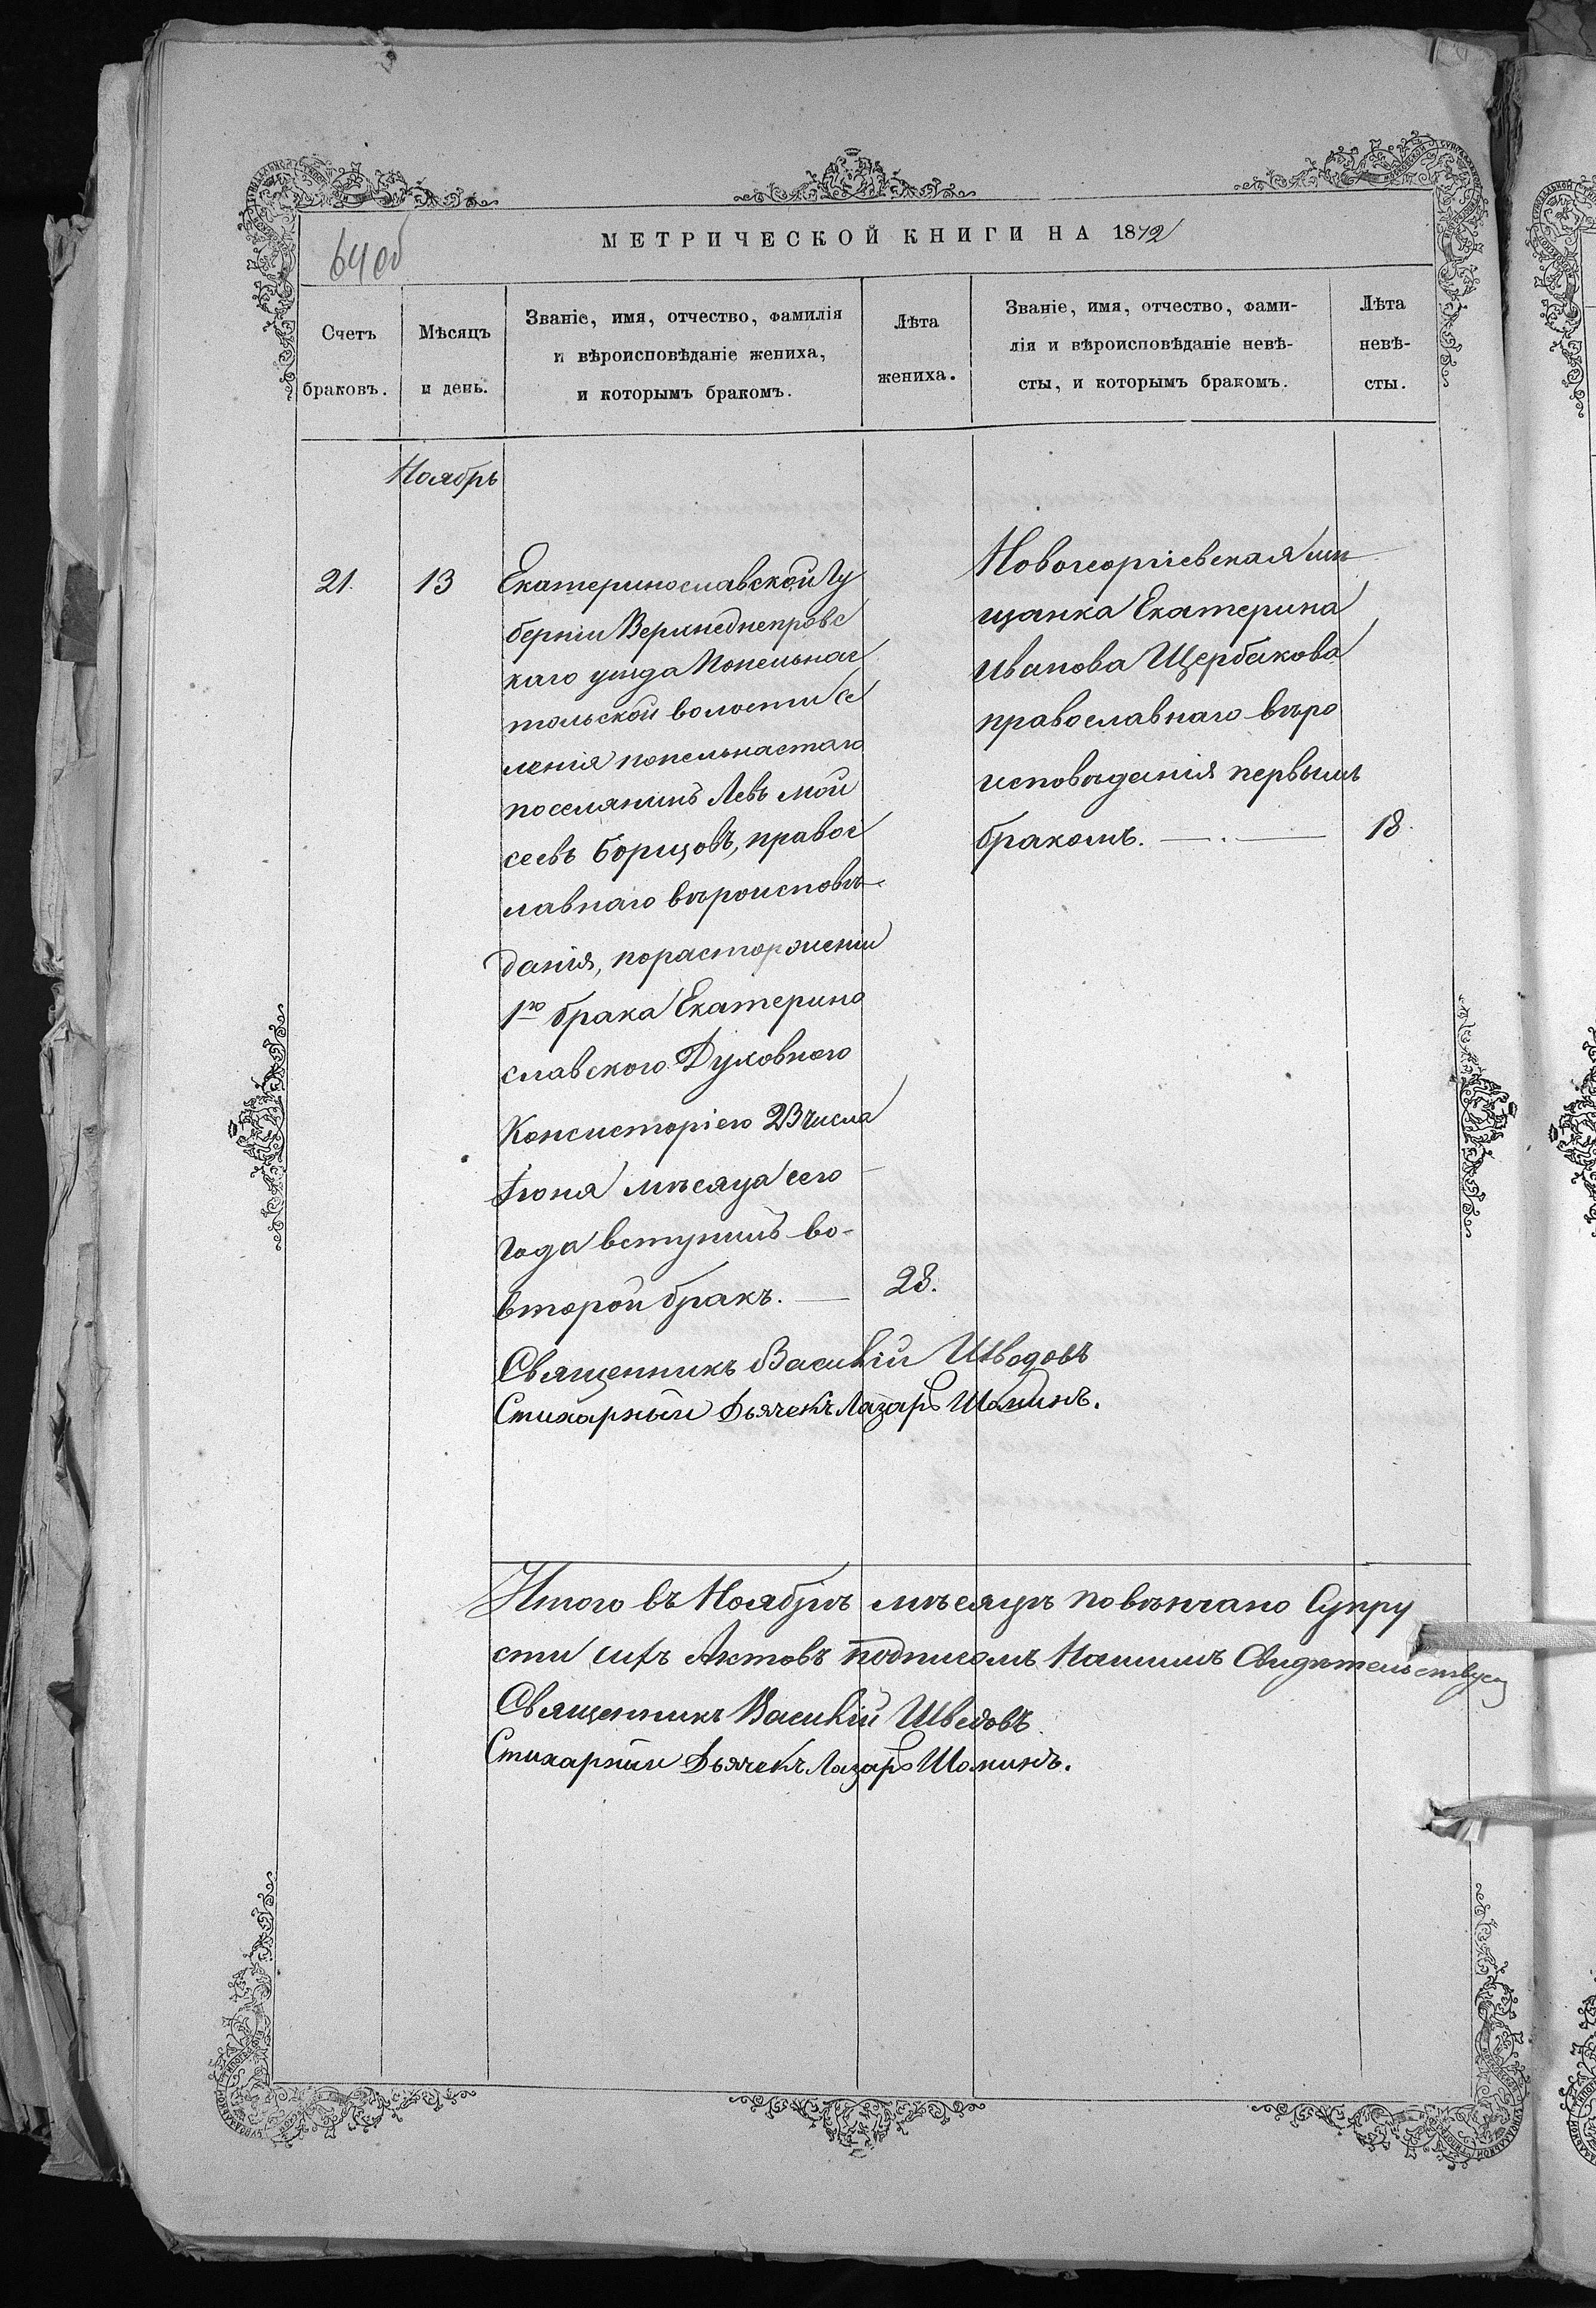 64об
МЕТРИЧЕСКОЙ КНИГИ НА 1872
Счетъ браковъ.
Мѣсяцъ и день.
Званіе, имя, отчество, фамилія
и вѣроисповѣданіе жениха,
и которымъ бракомъ.
Лѣта жениха.
Званіе, имя, отчество, фами-
лія и вѣроисповѣданіе невѣ-
сты, и которымъ бракомъ.
Лѣта невѣ-
сты.
Ноябрь
21. 13
Екатеринославской Гу
берніи Верхнеднепровс
каго уѣзда Попельнас
тольской волости Се
ленія попельнастаго
поселянинъ Левъ мой
сеевъ Борщовъ, правос
лавнаго вѣроисповѣ-
данія, порасторженіи
1го брака Екатерино
славского Духовного
Консисторіею 23 числа
Іюня мѣсяца сего
года вступилъ во-
второй бракъ. — 28.
Новогеоргіевская мѣ
щанка Екатерина
Иванова Щербакова
православнаго вѣро
исповѣданія первымъ
бракомъ. — . — 18.
Священникъ Василій Шведовъ
Стихарный Дьячекъ Лазарь Шоминъ.
Итого въ Ноябрѣ мѣсяцѣ повѣнчано Супру
сти сихъ Актовъ подписомъ Нашимъ Свидѣтельствуем
Священникъ Василій Шведовъ
Стихарный Дьячекъ Лазарь Шоминъ.